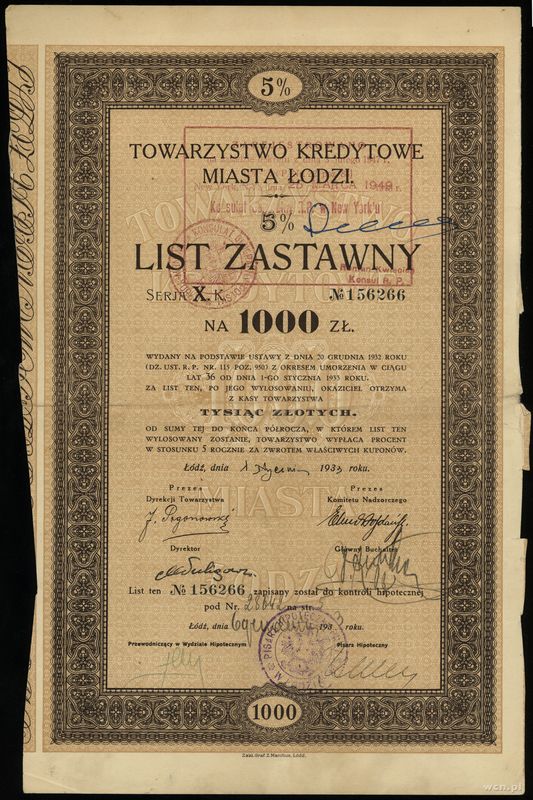 5%
TOWARZYSTWO KREDYTOWE
MIASTA ŁODZI.
28 MARCA 1949 r.
Konsulat R.P. w New York'u
5%
LIST ZASTAWNY
Konsul R. P.
SERJA X. K. № 156266
NA 1000 ZŁ.
WYDANY NA PODSTAWIE USTAWY Z DNIA 20 GRUDNIA 1932 ROKU
(DZ. UST. R. P. NR. 115 POZ. 950) Z OKRESEM UMORZENIA W CIĄGU
LAT 36 OD DNIA 1-GO STYCZNIA 1933 ROKU.
ZA LIST TEN, PO JEGO WYLOSOWANIU, OKAZICIEL OTRZYMA
Z KASY TOWARZYSTWA
TYSIĄC ZŁOTYCH.
OD SUMY TEJ DO KOŃCA PÓŁROCZA, W KTÓREM LIST TEN
WYLOSOWANY ZOSTANIE, TOWARZYSTWO WYPŁACA PROCENT
W STOSUNKU 5 ROCZNIE ZA ZWROTEM WŁAŚCIWYCH KUPONÓW.
Łódź, dnia 1 stycznia 1933 roku.
Prezes Prezes
Dyrekcji Towarzystwa Komitetu Nadzorczego
Dyrektor Główny Buchalter
List ten № 156266 zapisany został do kontroli hipotecznej
pod Nr. na str.
Łódź, dnia 6 grudnia 193 roku.
Przewodniczący w Wydziale Hipotecznym Pisarz Hipoteczny
1000
Zakł. Graf. Z. Manitius, Łódź.
wcn.pl